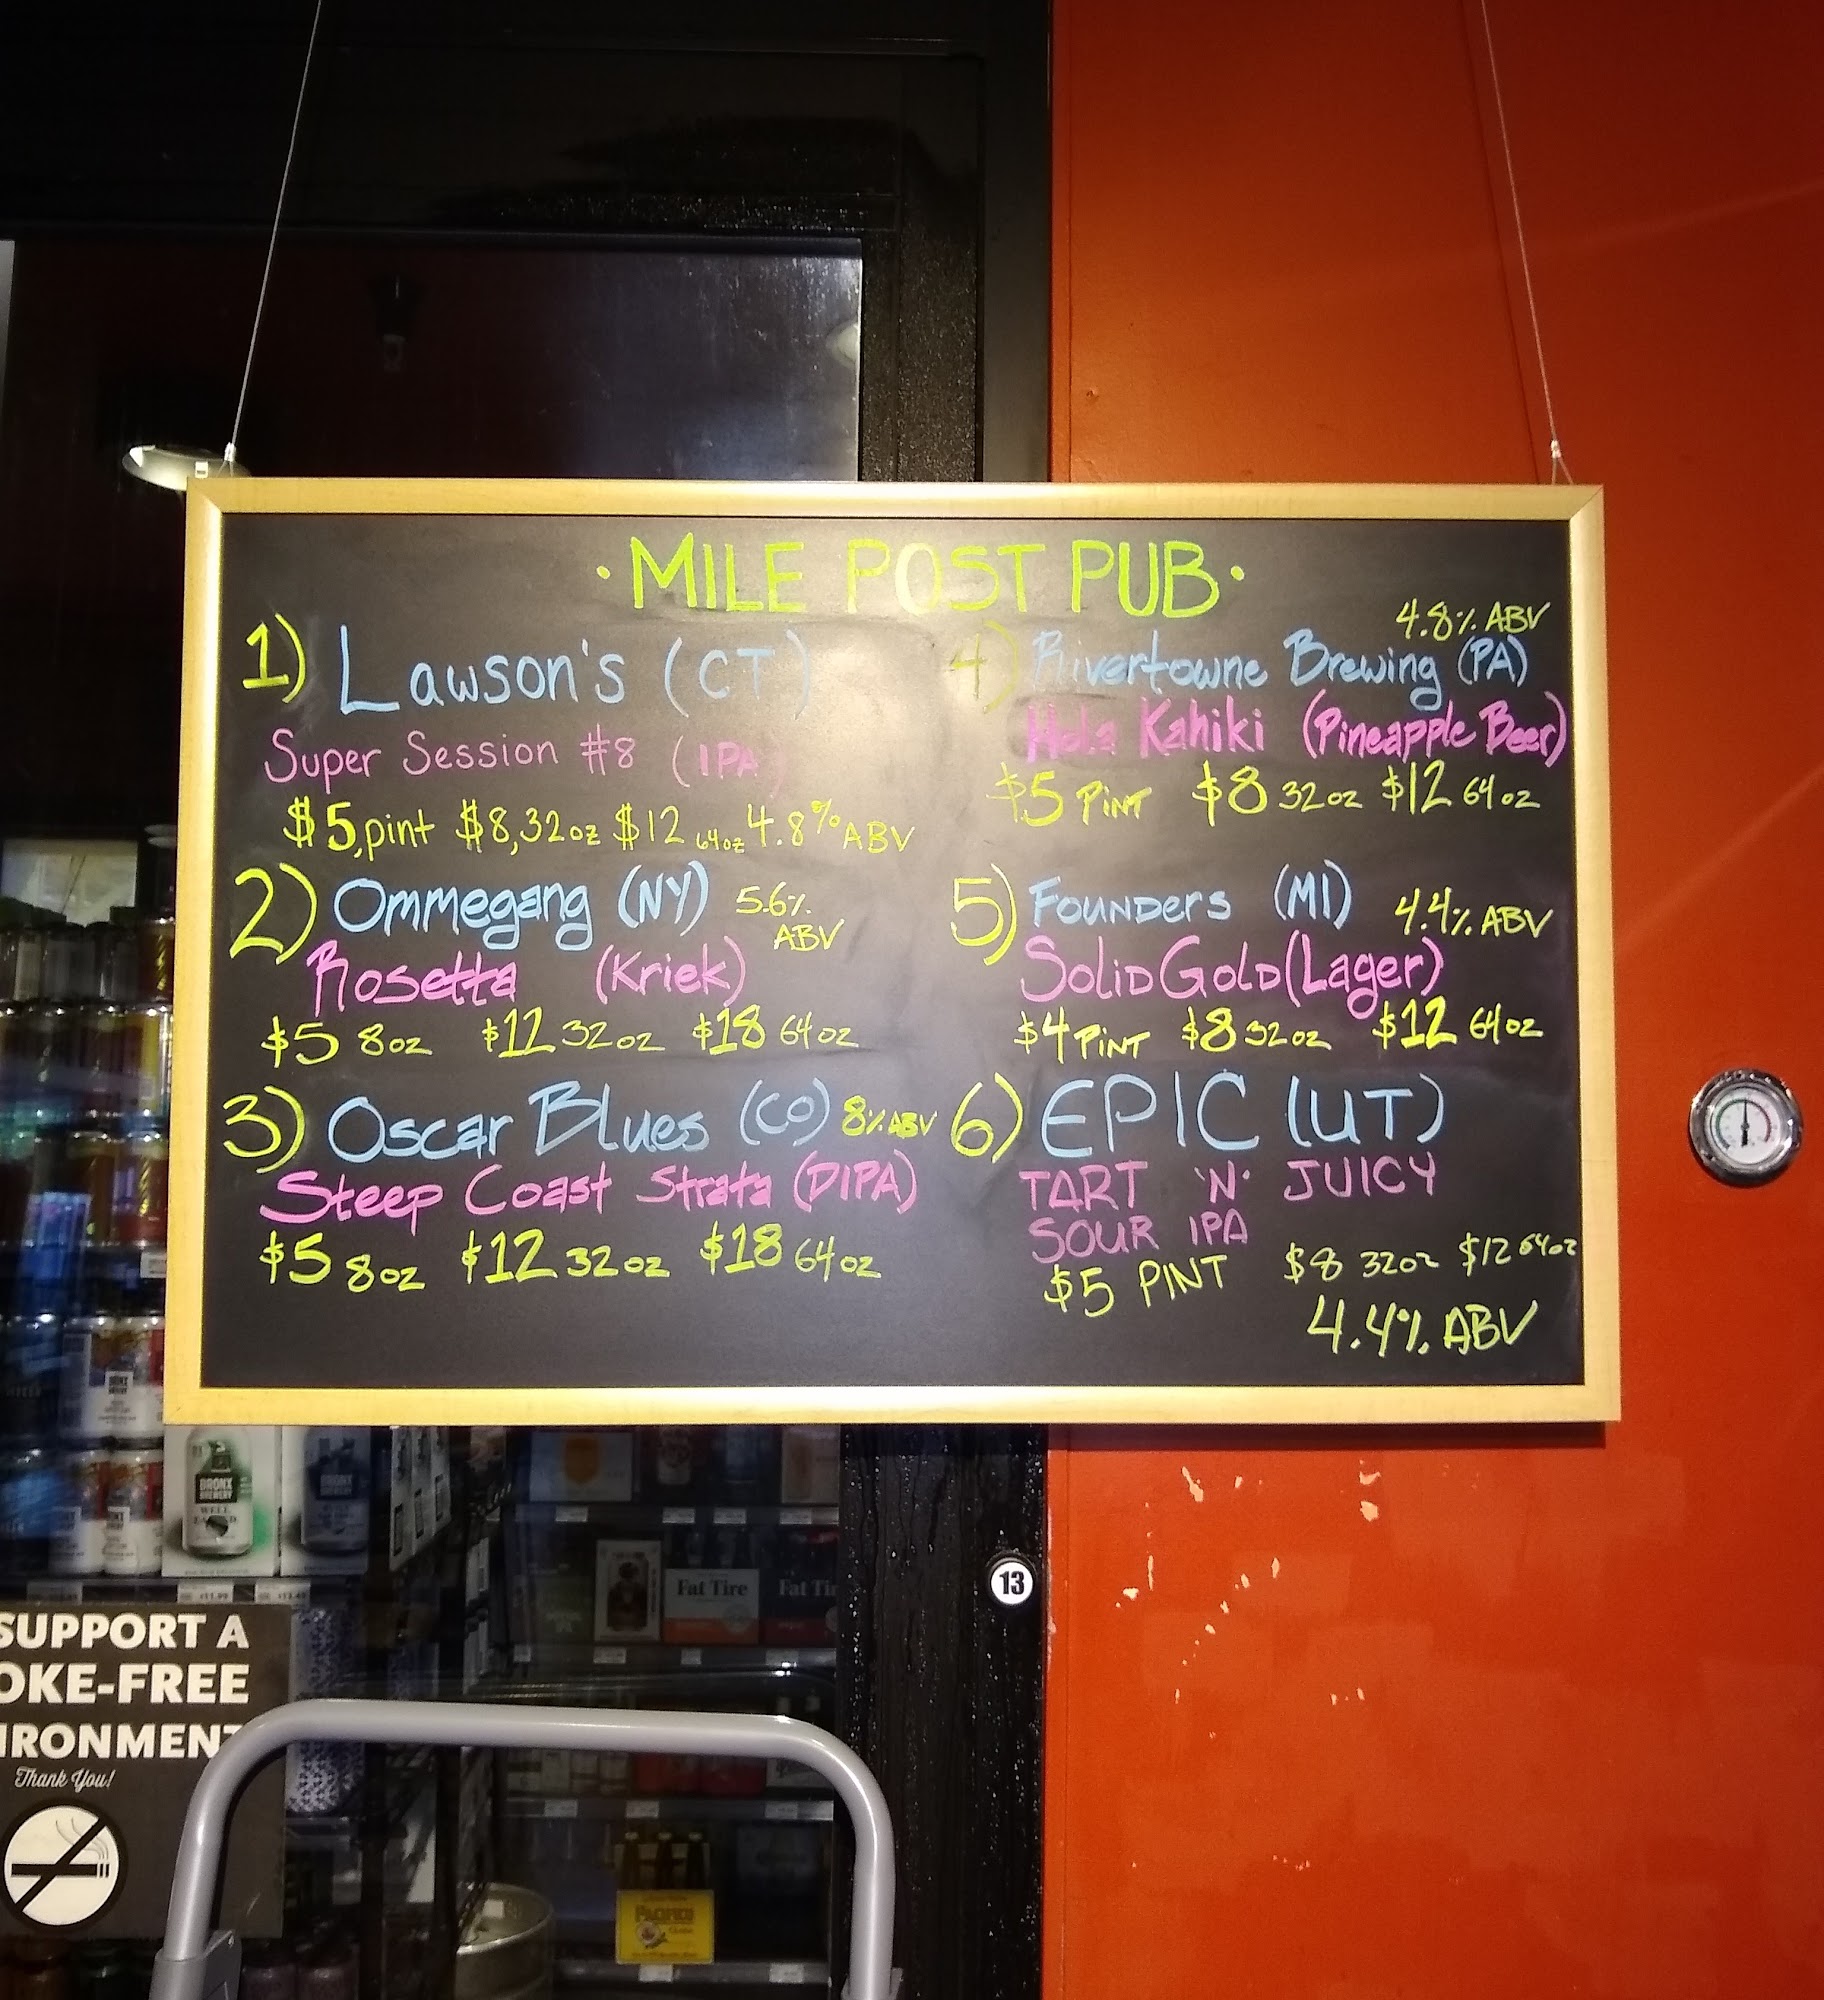 · MILE POST PUB ·
1) Lawson's (CT)
Super Session #8 (IPA)
$5, pint $8, 32oz $12 64oz 4.8% ABV
2) Ommegang (NY) 5.6% ABV
Rosetta (Kriek)
$5 8oz $12 32oz $18 64oz
3) Oscar Blues (CO) 8% ABV
Steep Coast Strata (DIPA)
$5 8oz $12 32oz $18 64oz
4.8% ABV
4) Rivertowne Brewing (PA)
Hola Kahiki (Pineapple Beer)
$5 PiNT $8 32oz $12 64oz
5) Founders (MI) 4.4% ABV
Solid Gold (Lager)
$4 PiNT $8 32oz $12 64oz
6) EPIC (UT)
TART 'N' JUICY
SOUR IPA
$5 PINT $8 32oz $12 64oz
4.4% ABV
BRONX
BREWERY
13
Fat Tire
Fat Tir
SUPPORT A
OKE-FREE
IRONMENT
Thank You!
PACIFICO